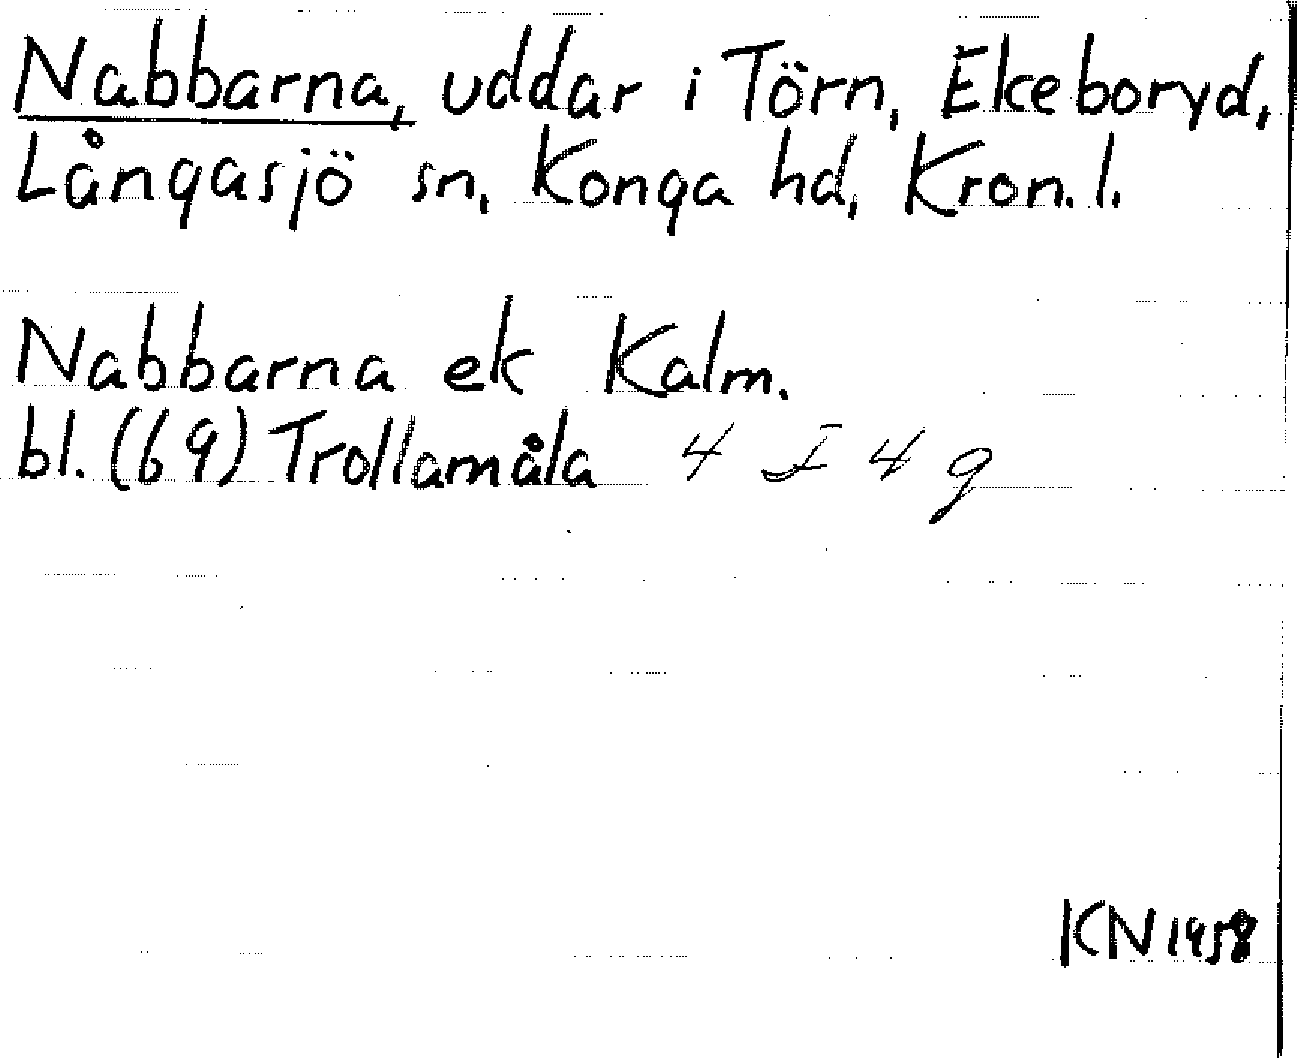 Nabbarna, uddar i Törn, Ekeboryd,
Långasjö sn, Konga hd, Kron. l.
Nabbarna ek Kalm.
bl. (69) Trollamåla 4 I 4 g
KN 1958